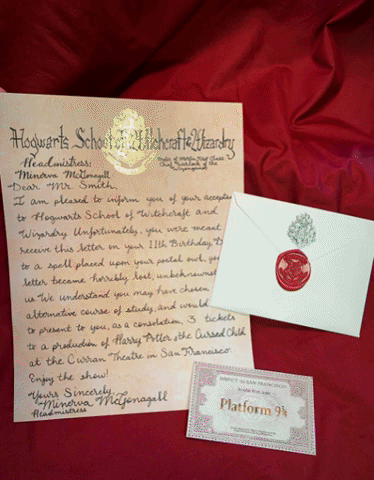 Hogwarts School of Witchcraft & Wizardry
Headmistress:
Minerva McGonagall
Dear Mr. Smith,
I am pleased to inform you of your accepta
to Hogwarts School of Witchcraft and
Wizardry. Unfortunately, you were meant
receive this letter on your 11th Birthday. D
to a spell placed upon your postal owl, you
letter became horribly lost, unbeknownst
us. We understand you may have chosen
alternative course of study, and would
to present to you, as a consolation, 3 tickets
to a production of Harry Potter & the Cursed Child
at the Curran Theatre in San Francisco.
Enjoy the show!
Yours Sincerely,
Minerva McGonagall
Headmistress
Platform 9¾